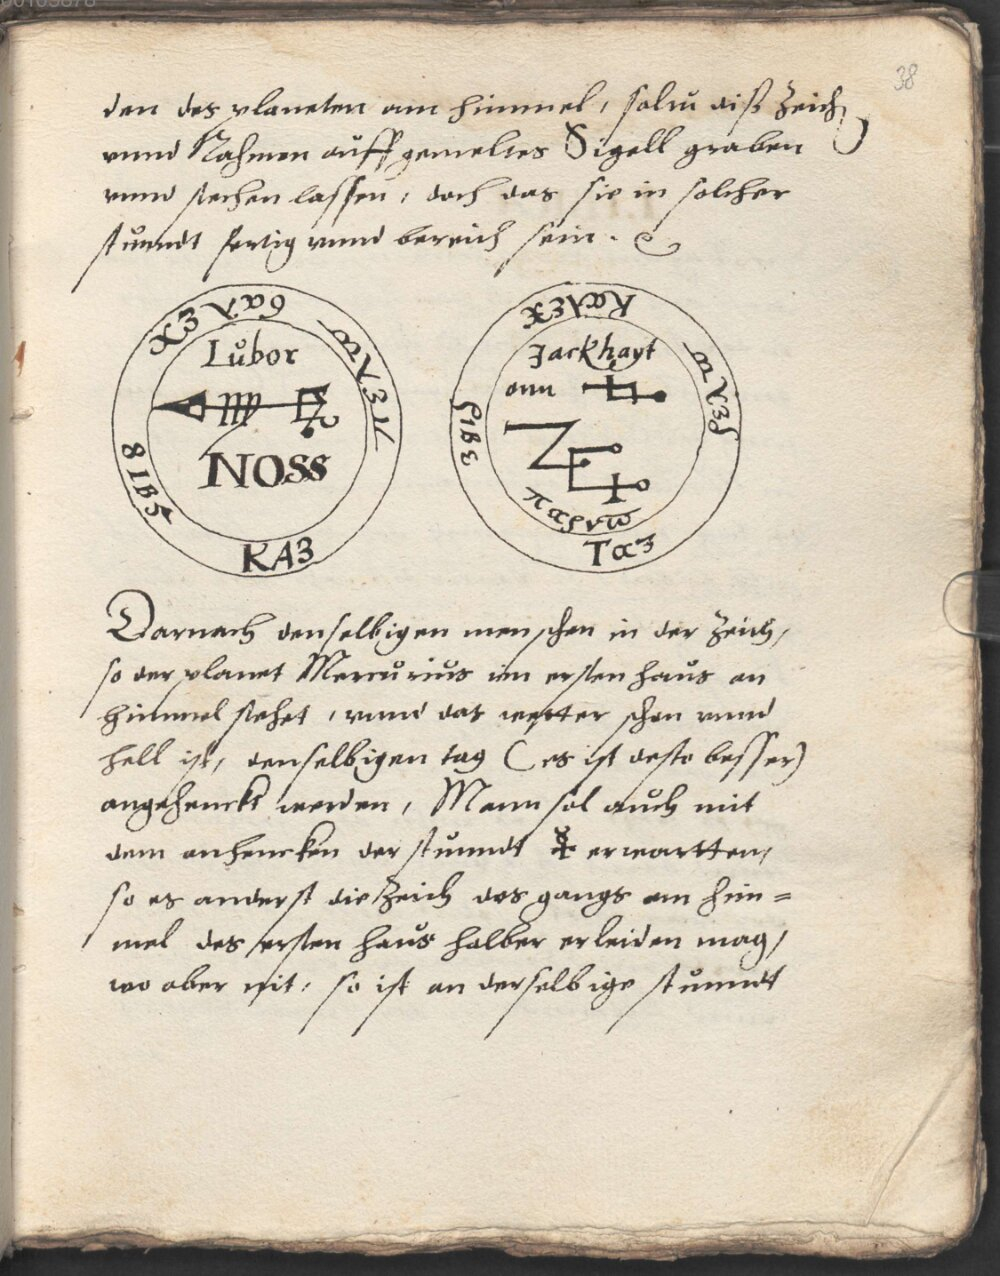 38
den des planeten am himmel, soltu diß zeich
vnnd Nahmen auff gemeltes Sigell graben
vnnd stechen lassen, doch das sie in solcher
stunndt fertig vnnd bereich sein.
Lubor
NOSS
KA3
Jackhayt
ann
Ta3
Darnach denselbigen menschen in der zeich,
so der planet Mercurius im ersten haus an
himmel stehet, vnnd das wetter schon vnnd
hell ist, denselbigen tag (es ist desto besser)
angehenckt werden, Mann sol auch mit
dem anhencken der stunndt ☿ erwartten,
so es anderst die zeich des gangs am him=
mel des ersten haus halber erleiden mag,
wo aber nit, so ist an derselbige stunndt